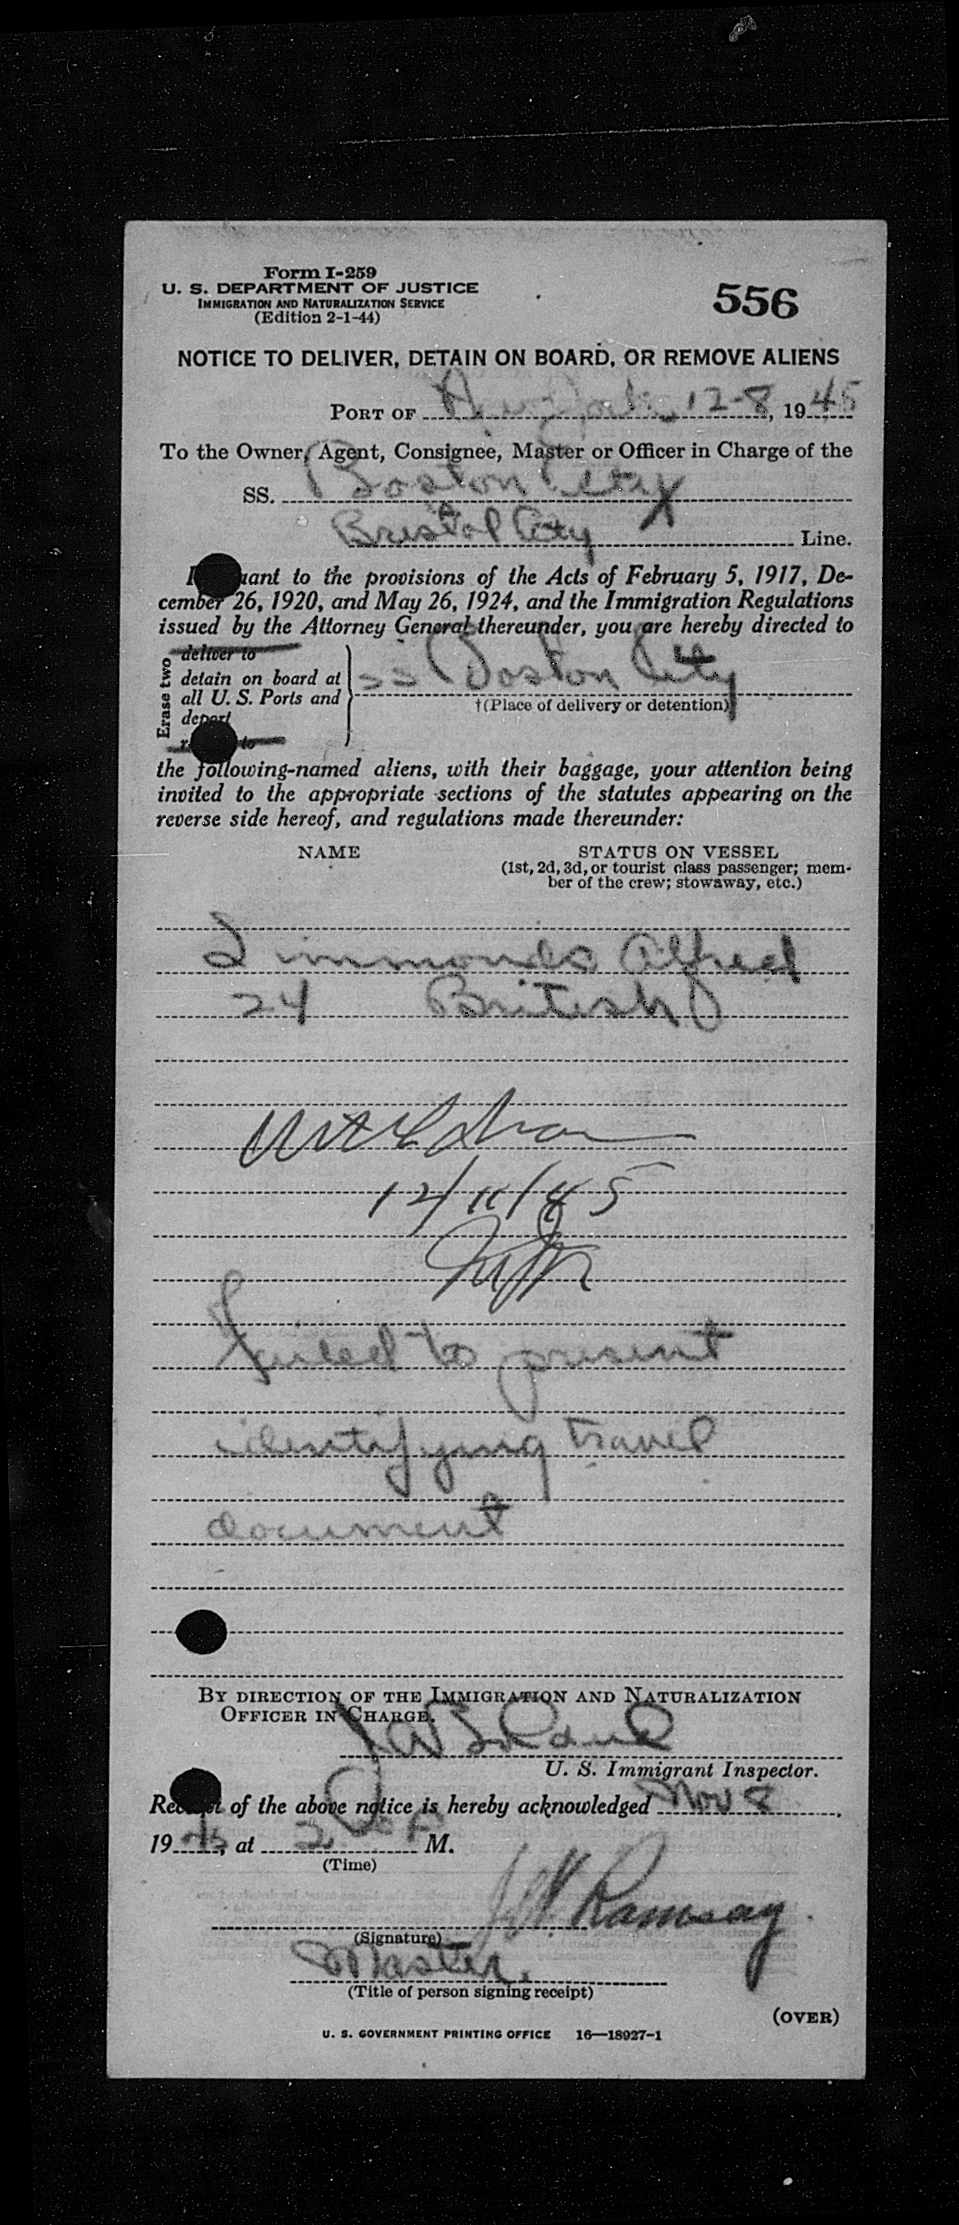 Form I-259
U. S. DEPARTMENT OF JUSTICE
IMMIGRATION AND NATURALIZATION SERVICE
(Edition 2-1-44)
556
NOTICE TO DELIVER, DETAIN ON BOARD, OR REMOVE ALIENS
PORT OF New York, 12-8, 1945
To the Owner, Agent, Consignee, Master or Officer in Charge of the
SS. Boston City
Bristol City Line.
uant to the provisions of the Acts of February 5, 1917, De-
cember 26, 1920, and May 26, 1924, and the Immigration Regulations
issued by the Attorney General thereunder, you are hereby directed to
Erase two
deliver to
detain on board at
all U. S. Ports and
deport
to
SS Boston City
†(Place of delivery or detention)
the following-named aliens, with their baggage, your attention being
invited to the appropriate sections of the statutes appearing on the
reverse side hereof, and regulations made thereunder:
NAME STATUS ON VESSEL
(1st, 2d, 3d, or tourist class passenger; mem-
ber of the crew; stowaway, etc.)
Simmonds Alfred
24 British
12/11/45
failed to present
identifying travel
document
BY DIRECTION OF THE IMMIGRATION AND NATURALIZATION
OFFICER IN CHARGE.
U. S. Immigrant Inspector.
Receipt of the above notice is hereby acknowledged Nov 8,
1945, at 2 P M.
(Time)
Ramsay
(Signature)
Master.
(Title of person signing receipt)
(OVER)
U. S. GOVERNMENT PRINTING OFFICE 16—18927-1